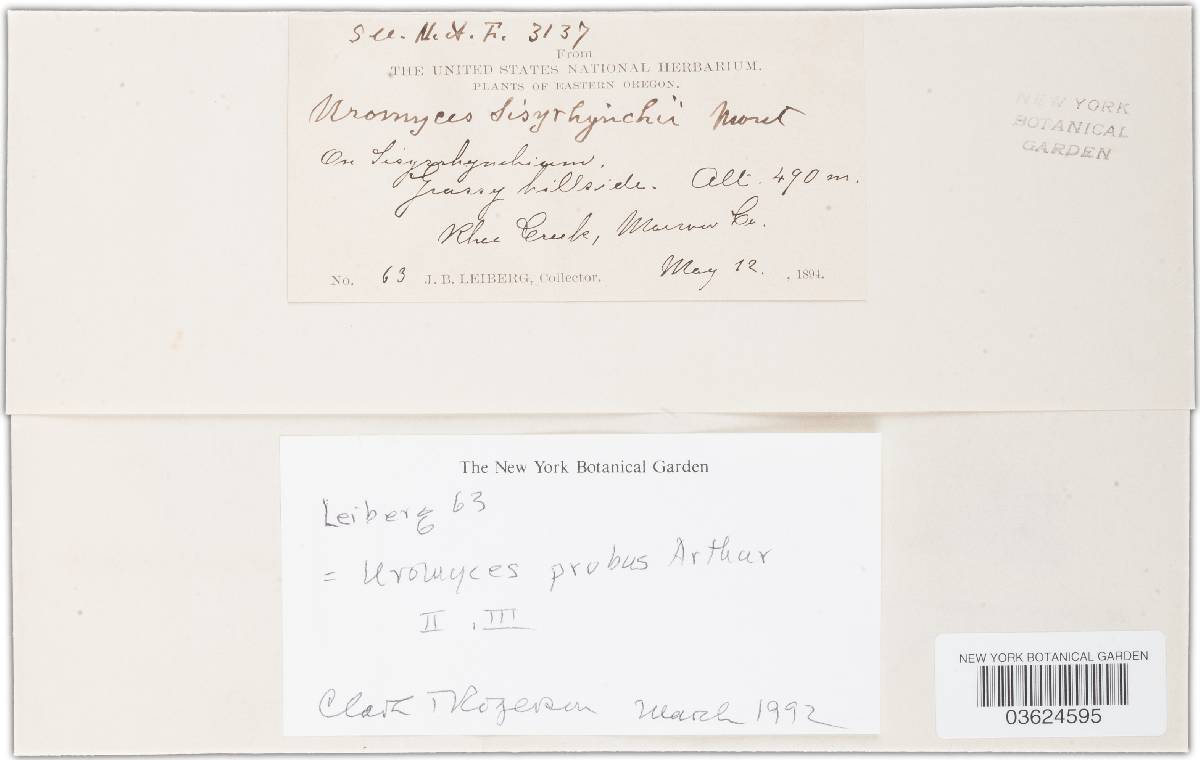 See. N. A. F. 3137
From
THE UNITED STATES NATIONAL HERBARIUM.
PLANTS OF EASTERN OREGON.
Uromyces Sisyrhynchii Mont
On Sisyrhynchium.
Grassy hillside. Alt. 490 m.
Rhea Creek, Morrow Co.
No. 63 J. B. LEIBERG, Collector. May 12. , 1894.
NEW YORK
BOTANICAL
GARDEN
The New York Botanical Garden
Leiberg 63
= Uromyces probus Arthur
II , III
Clark T Rogerson March 1992
NEW YORK BOTANICAL GARDEN
03624595